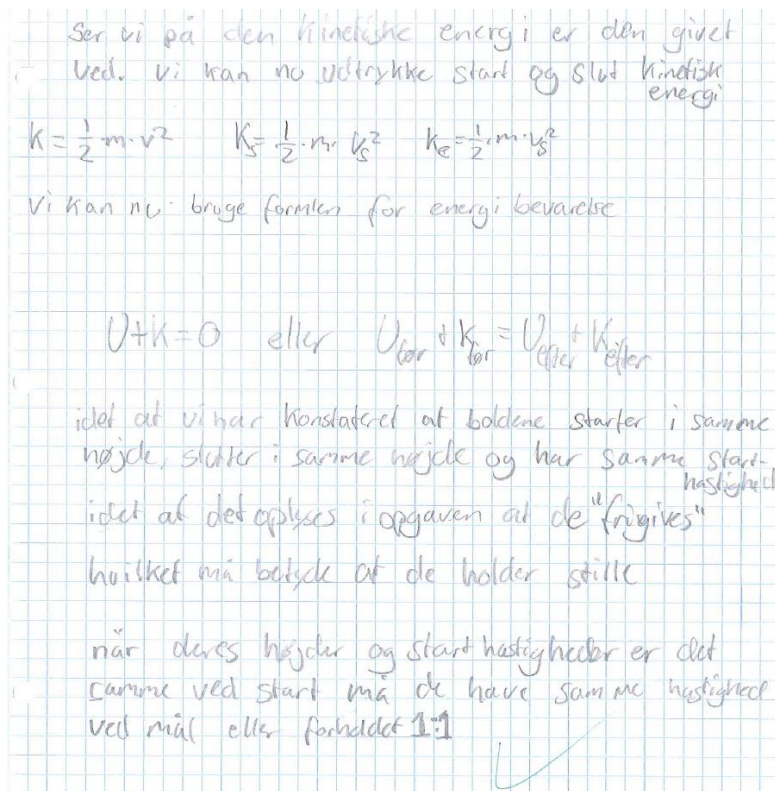 Ser vi på den kinetiske energi er den givet
ved. vi kan nu udtrykke start og slut kinetisk
energi
K = 1/2 · m · v² K_s = 1/2 · m · V_s² K_e = 1/2 · m · V_s²
Vi kan nu bruge formlen for energi bevarelse
U+K=0 eller U_før + K_før = U_efter + K_efter
idet at vi har konstateret at boldene starter i samme
højde, slutter i samme højde og har samme start-
hastighed
idet at det oplyses i opgaven at de "frigives"
hvilket må betyde at de holder stille
når deres højder og start hastigheder er det
samme ved start må de have samme hastighed
ved mål eller forholdet 1:1